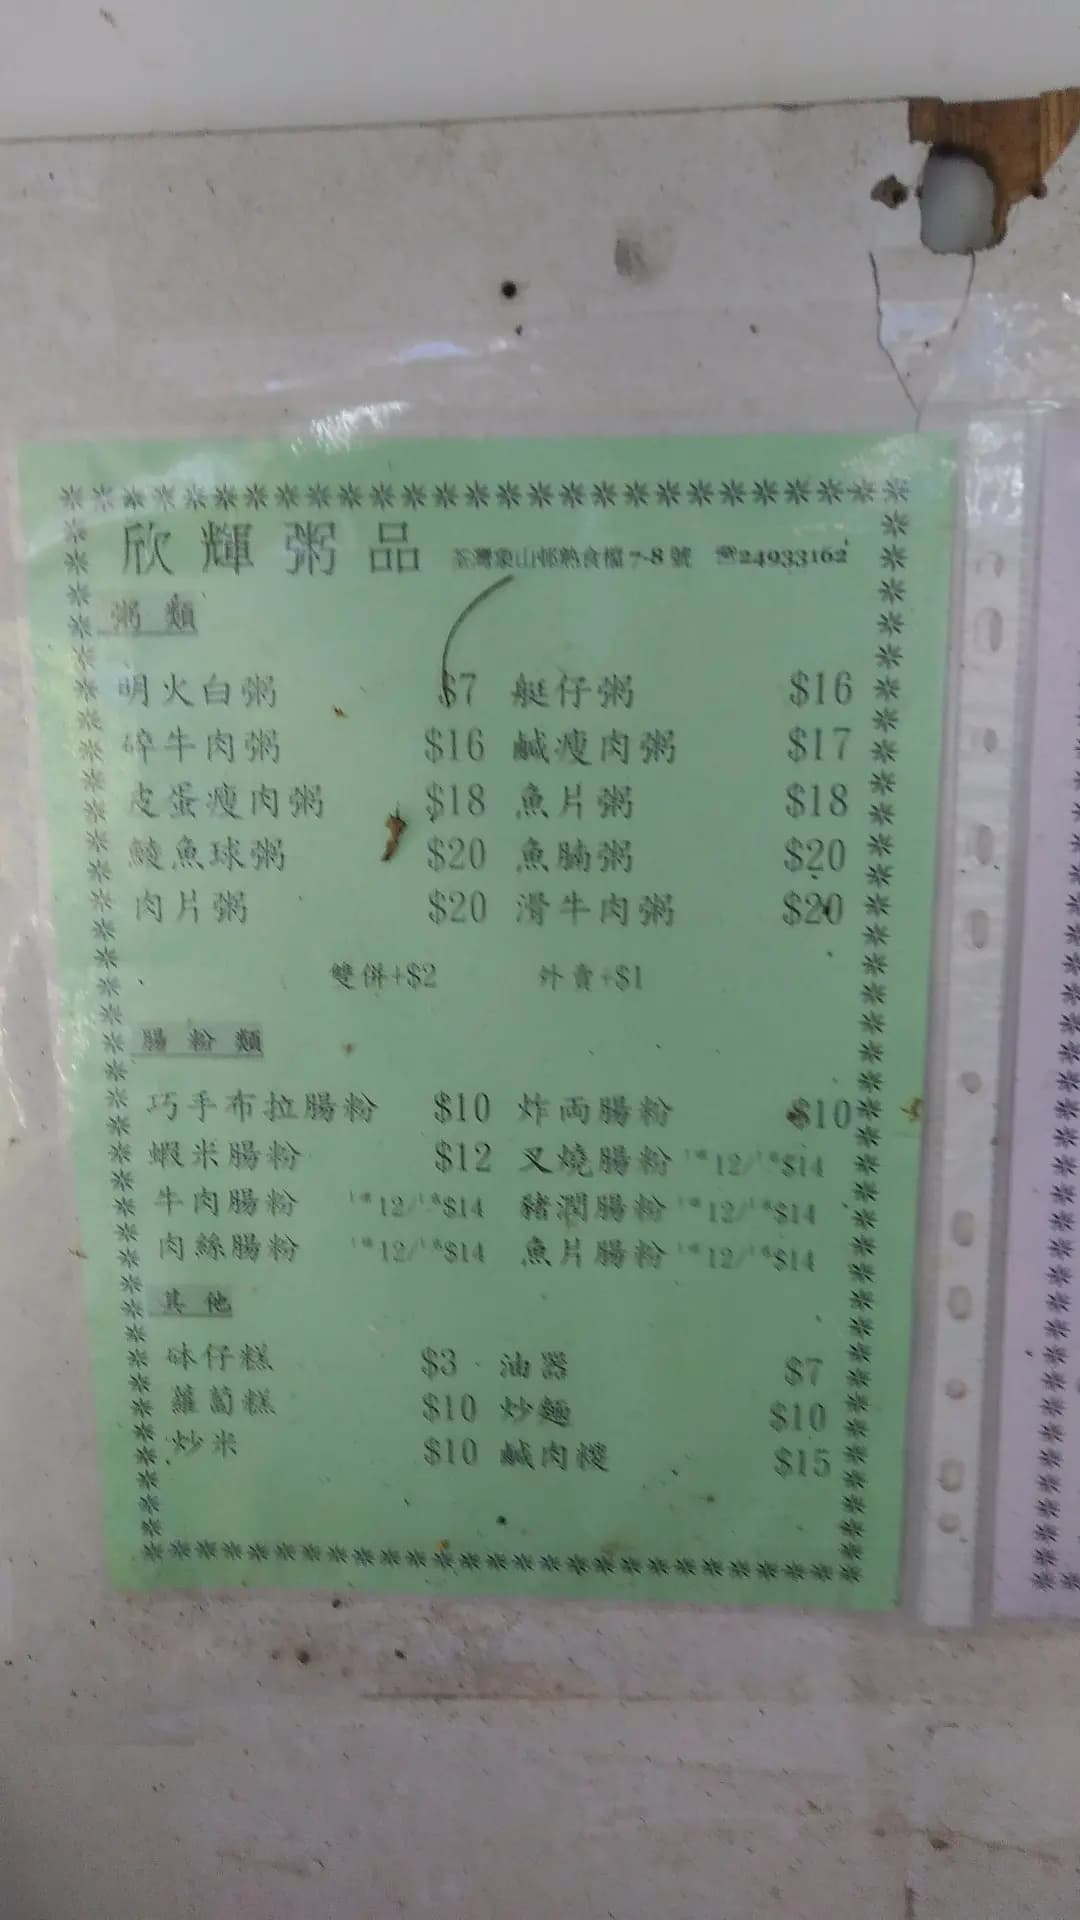 欣輝粥品 荃灣象山邨熟食檔7-8號 ☎24933162
粥類
明火白粥 $7 艇仔粥 $16
碎牛肉粥 $16 鹹瘦肉粥 $17
皮蛋瘦肉粥 $18 魚片粥 $18
鯪魚球粥 $20 魚腩粥 $20
肉片粥 $20 滑牛肉粥 $20
雙併+$2 外賣+$1
腸粉類
巧手布拉腸粉 $10 炸両腸粉 $10
蝦米腸粉 $12 叉燒腸粉 12/$14
牛肉腸粉 12/$14 豬潤腸粉 12/$14
肉絲腸粉 12/$14 魚片腸粉 12/$14
其他
砵仔糕 $3 油器 $7
蘿蔔糕 $10 炒麵 $10
炒米 $10 鹹肉糉 $15